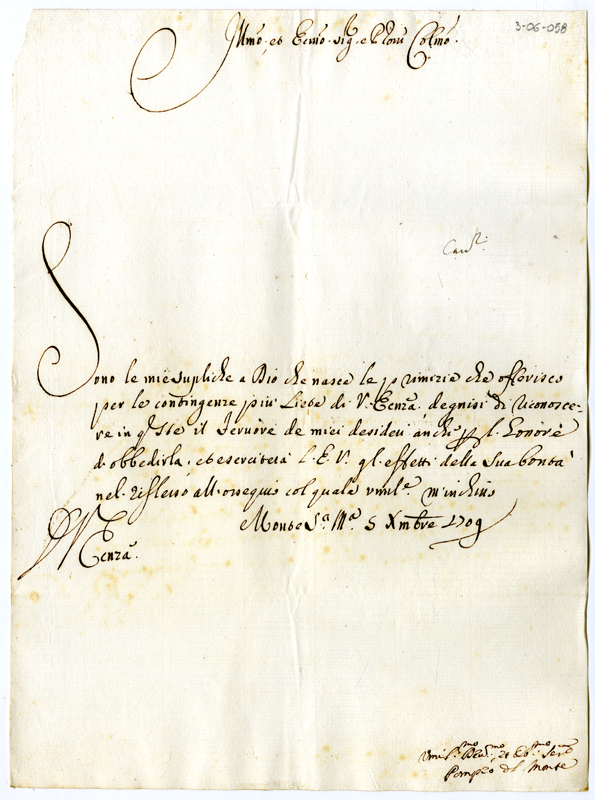 3-06-058
Illmo. et Ecmo. sig. e Pron Colmo.
Sono le mie supliche a Dio che nasce le primizie che offerisco
per le contingenze piu liete di V. Ecnza. degnisi di riconosce-
re in queste il fervore de miei desideri anche p l'honore
d'obbedirla, et esercitera l'E.V. gl'effetti della sua bonta
nel riflesso all'ossequio col quale umile. m'inchino
Monte Sa. Ma. 5 Xmbre 1709
D V E
Ecnza.
Umilmo. Devmo. et Obmo. Sere
Pompeo del Monte